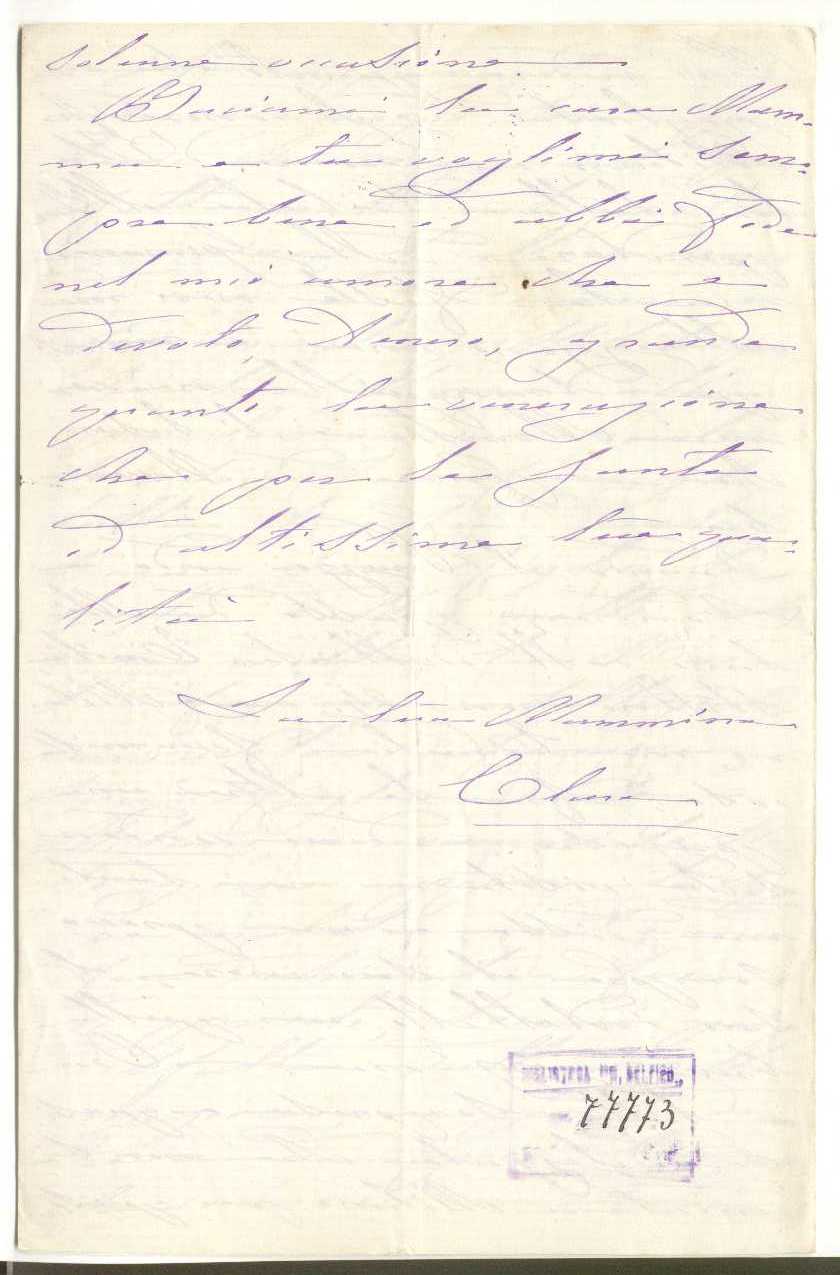 solenne occasione.
Baciami la cara Mam-
ma e tu voglimi sem-
pre bene ed abbi fede
nel mio amore che è
devoto, tenero, grande
quanto la venerazione
che per le sante
ed altissime tue qua-
lità
La tua Mammina
Clara
BIBLIOTECA "M. DELFICO"
77773